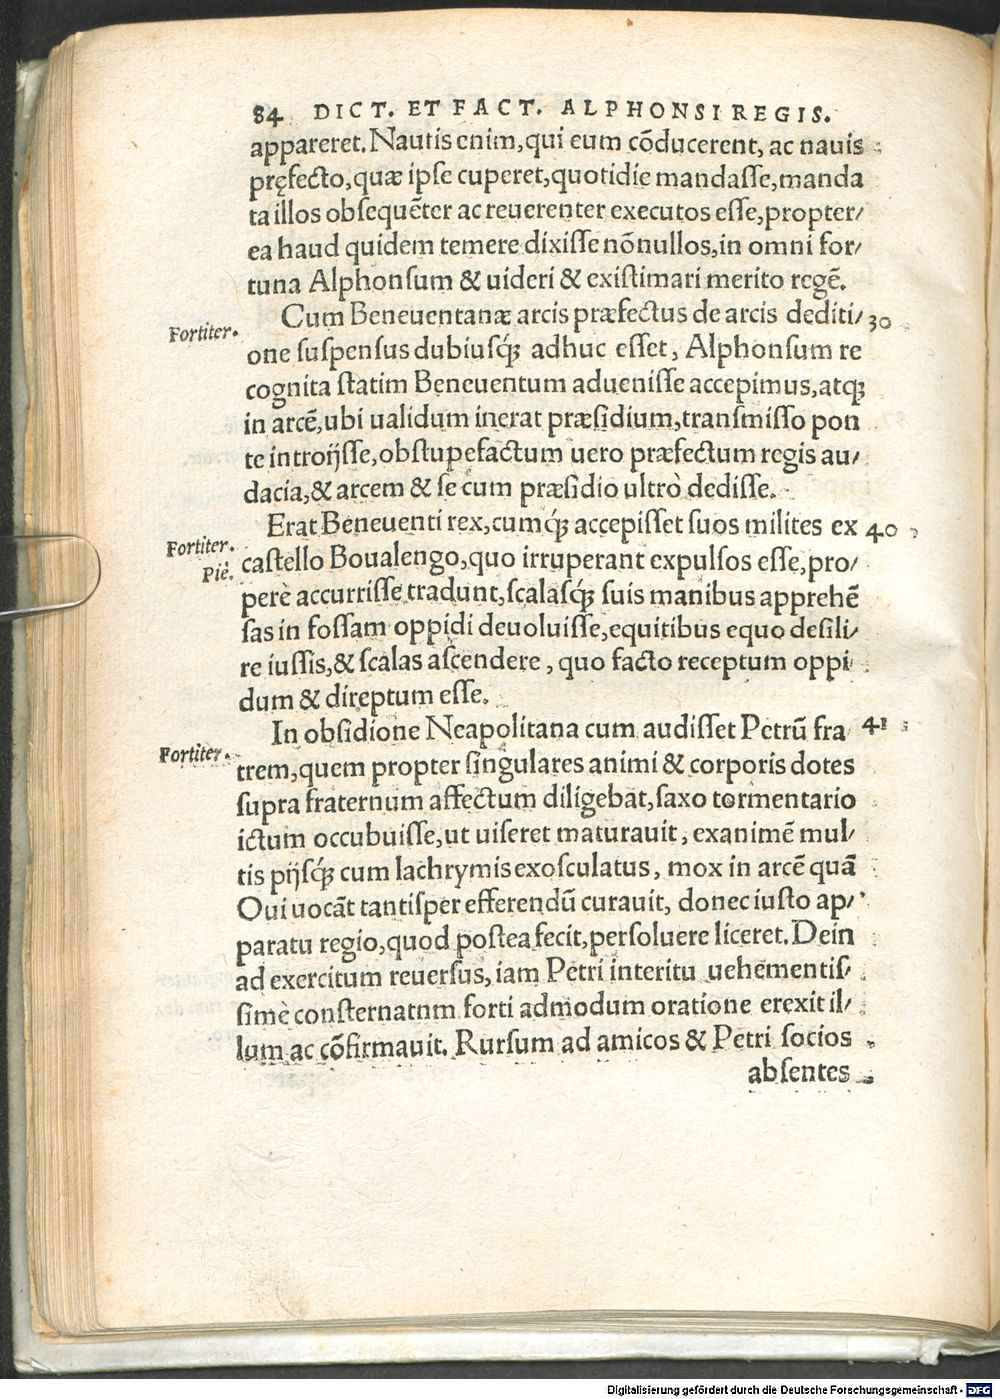 84 DICT. ET FACT. ALPHONSI REGIS.
appareret. Nautis enim, qui eum cōducerent, ac nauis
pręfecto, quæ ipse cuperet, quotidie mandasse, manda
ta illos obsequēter ac reuerenter executos esse, propter/
ea haud quidem temere dixisse nōnullos, in omni for/
tuna Alphonsum & uideri & existimari merito regē.
Cum Beneuentanæ arcis præfectus de arcis dediti/ 30
Fortiter.
one suspensus dubiusq́; adhuc esset, Alphonsum re
cognita statim Beneuentum aduenisse accepimus, atq;
in arcē, ubi ualidum inerat præsidium, transmisso pon
te introijsse, obstupefactum uero præfectum regis au/
dacia, & arcem & se cum præsidio ultrò dedisse.
Erat Beneuenti rex, cumq́; accepisset suos milites ex 40
Fortiter.
castello Boualengo, quo irruperant expulsos esse, pro/
Piè.
perè accurrisse tradunt, scalasq́; suis manibus apprehē
sas in fossam oppidi deuoluisse, equitibus equo desili/
re iussis, & scalas ascendere, quo facto receptum oppi
dum & direptum esse.
In obsidione Neapolitana cum audisset Petrū fra 41
Fortiter.
trem, quem propter singulares animi & corporis dotes
supra fraternum affectum diligebat, saxo tormentario
ictum occubuisse, ut uiseret maturauit, exanimē mul/
tis pijsq́; cum lachrymis exosculatus, mox in arcē quā
Oui uocāt tantisper efferendū curauit, donec iusto ap/
paratu regio, quod postea fecit, persoluere liceret. Dein
ad exercitum reuersus, iam Petri interitu uehementis/
simè consternatnm forti admodum oratione erexit il/
lum ac cōfirmauit. Rursum ad amicos & Petri socios
absentes
Digitalisierung gefördert durch die Deutsche Forschungsgemeinschaft - DFG